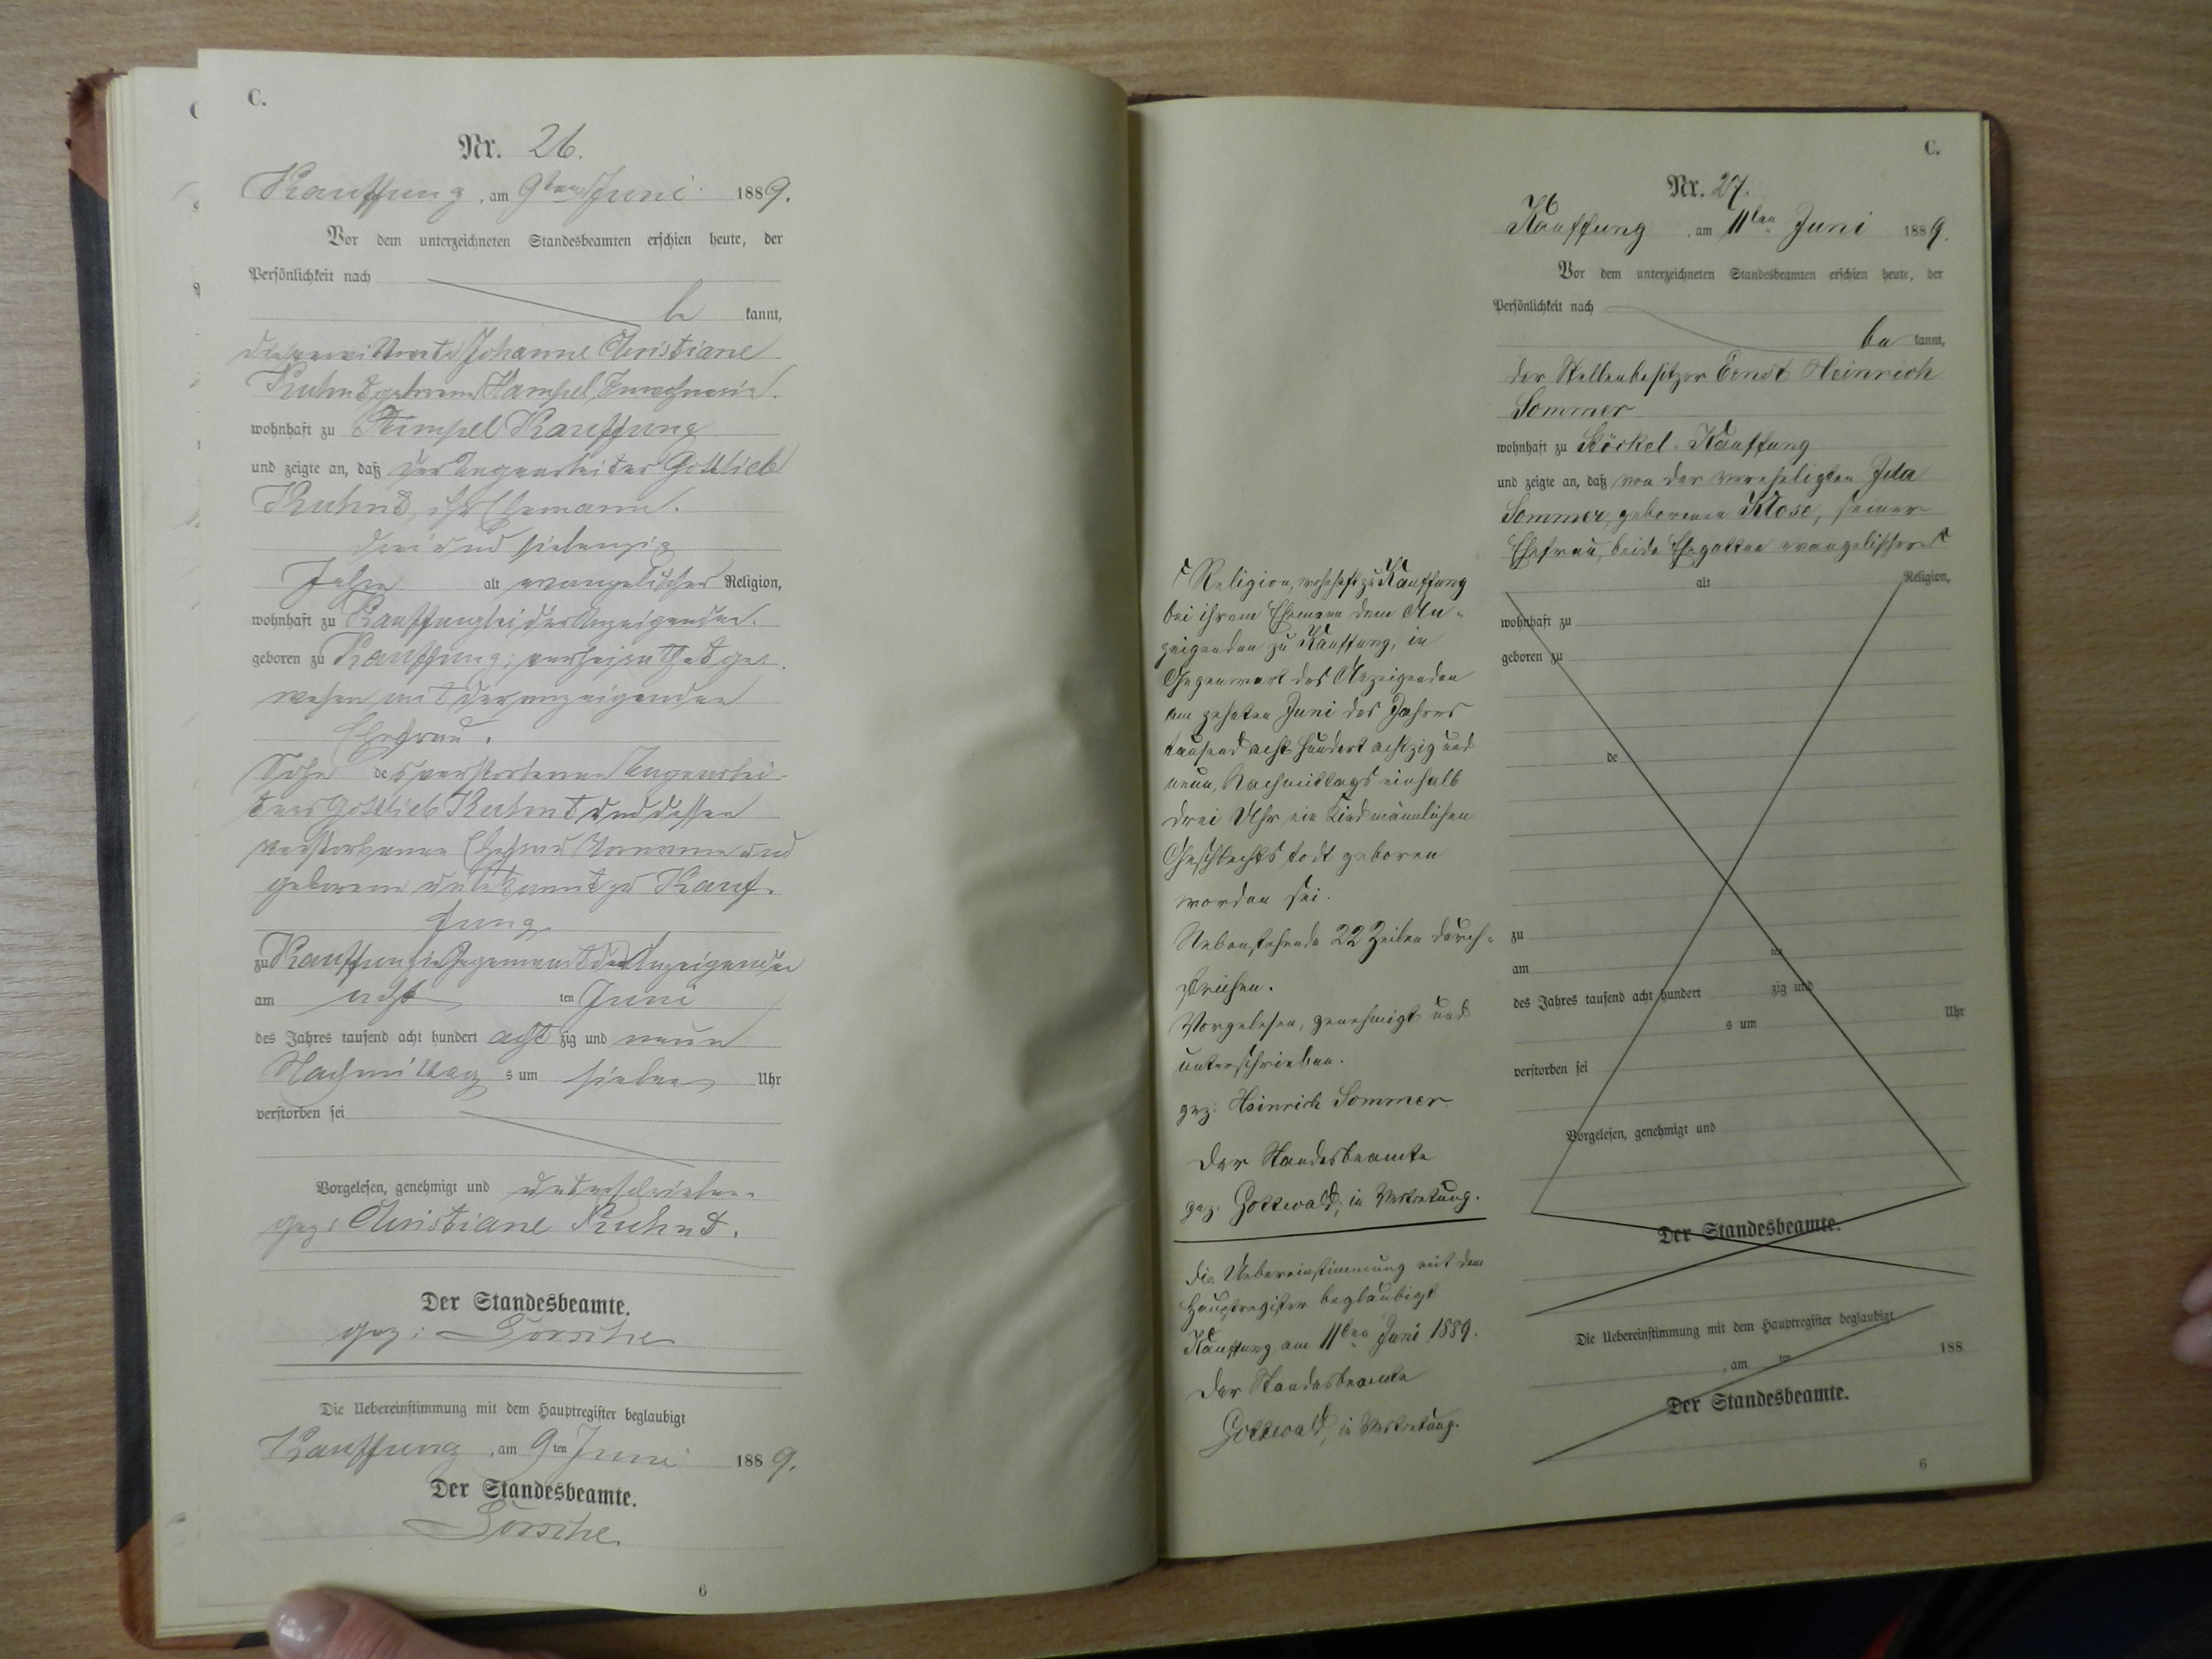 C.
Nr. 26.
Kauffung, am 9ten Juni 1889.
Vor dem unterzeichneten Standesbeamten erschien heute, der
Persönlichkeit nach
be kannt,
die verwittwete Johanne Christiane
Kuhnt, geborene Hampel, Inwohnerin.
wohnhaft zu Stimpel Kauffung
und zeigte an, daß der Tagearbeiter Gottlieb
Kuhnt, ihr Ehemann.
drei und siebenzig
Jahre alt evangelischer Religion,
wohnhaft zu Kauffung bei der Anzeigenden.
geboren zu Kauffung; verheirathet ge-
wesen mit der anzeigenden
Ehefrau.
Sohn des verstorbenen Tagearbei-
ters Gottlieb Kuhnt und dessen
verstorbenen Ehefrau Vorname und
geborene unbekannt zu Kauf-
fung
zu Kauffung in Gegenwart der Anzeigenden
am acht ten Juni
des Jahres tausend acht hundert acht zig und neun
Nachmittag s um sieben Uhr
verstorben sei
Vorgelesen, genehmigt und unterschrieben
gez: Christiane Kuhnt.
Der Standesbeamte.
gez:
Die Uebereinstimmung mit dem Hauptregister beglaubigt
Kauffung, am 9ten Juni 1889.
Der Standesbeamte.
6
C.
Nr. 27.
Kauffung, am 11ten Juni 1889.
Vor dem unterzeichneten Standesbeamten erschien heute, der
Persönlichkeit nach
be kannt,
der Stellenbesitzer Ernst Heinrich
Sommer
wohnhaft zu Stöckel-Kauffung
und zeigte an, daß von der verehelichten Ida
Sommer, geborenen Klose, seiner
Ehefrau, beide Ehegatten evangelischer
alt Religion,
wohnhaft zu
geboren zu
de
zu
am ten
des Jahres tausend acht hundert zig und
s um Uhr
verstorben sei
Vorgelesen, genehmigt und
Der Standesbeamte.
Die Uebereinstimmung mit dem Hauptregister beglaubigt
, am ten 188
Der Standesbeamte.
6
Religion, wohnhaft zu Kauffung
bei ihrem Ehemann dem An-
zeigenden zu Kauffung, in
Gegenwart des Anzeigenden
am zehnten Juni des Jahres
tausend acht hundert achtzig und
neun, Nachmittags einhalb
drei Uhr ein Kind männlichen
Geschlechts todt geboren
worden sei.
Nebenstehende 22 Zeilen durch-
strichen.
Vorgelesen, genehmigt und
unterschrieben.
gez: Heinrich Sommer
Der Standesbeamte
gez. Gottwald, in Vertretung.
Die Uebereinstimmung mit dem
Hauptregister beglaubigt
Kauffung am 11ten Juni 1889.
Der Standesbeamte
Gottwald, in Vertretung.